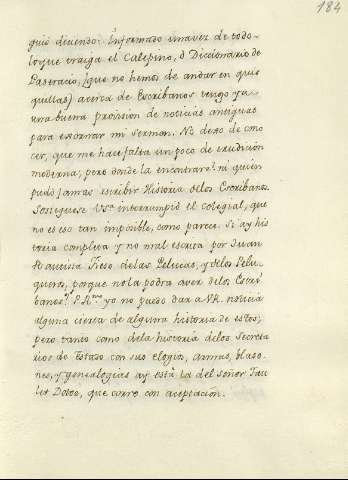 184
guió diciendo: Informado una vez de todo
lo que traiga el Calepino, ò Diccionario de
Paseracio, (que no hemos de andar en qui
quillas) acerca de Escribanos tengo ya
una buena provision de noticias antiguas
para exornar mi Sermon. No dexo de cono
cer, que me hace falta un poco de erudicion
moderna; pero donde la encontrare? ni quien
pudo jamas escribir Historia de los Escribanos
Sosieguese Usª interrumpió el colegial, que
no es eso tan imposible, como parece. Si ay his
toria completa y no mal escrita por Juan
Bautista Tieso de las Pelucas, y de los Pelu
queros, porque no la podra aver de los Escri
banos? P. Rmo yo no puedo dar a V.R. noticia
alguna cierta de alguna historia de estos;
pero tanto como de la historia de los Secreta
rios de Estado con sus elogios, armas, blaso
nes, y genealogias ay está la del Señor Fau
let Dotoo, que corre con aceptacion.